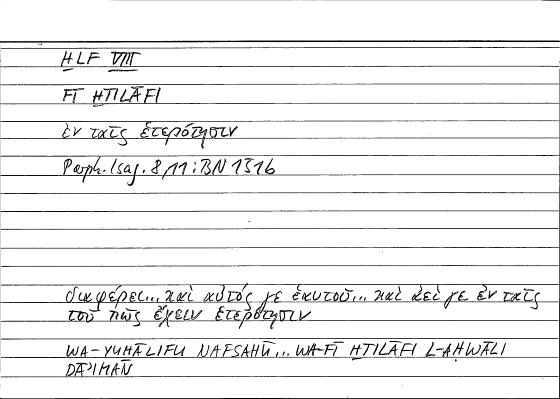 ḪLF VIII
FĪ ḪTILĀFI
ἐν ταῖς ἑτερότησιν
Porph. Isag. 8,11 : BN 1516
διαφέρει... καὶ αὐτός γε ἑαυτοῦ... καὶ ἀεί γε ἐν ταῖς
τοῦ πῶς ἔχειν ἑτερότησιν
WA-YUḪĀLIFU NAFSAHŪ... WA-FĪ ḪTILĀFI L-AḤWĀLI
DĀʾIMAN